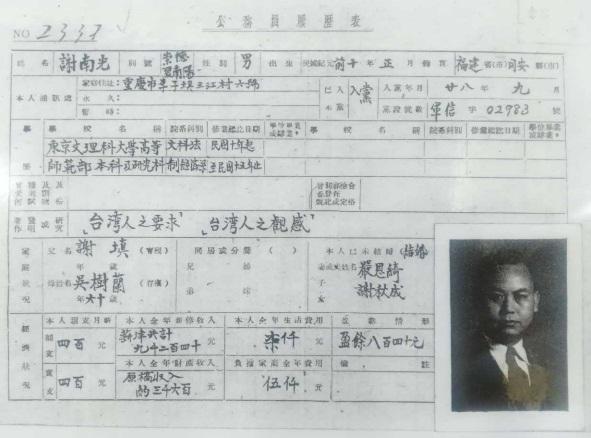 公務員履歷表
NO 2333
姓名 謝南光 別號 崇德 性別 男 出生 民國紀元前十年正月 籍貫 福建省(市)同安縣(市)
本人通訊處 重慶市 江村六號 已入本黨 入黨 入黨年月 廿八年九月
永久:
暫時: 黨證號數 軍信字02983號
學校名稱 院系科別 修業起訖日期 學校名稱 院系科別 修業起訖日期
東京文理科大學高等 文科法 民國十年起
師範部本科及研究科 制經濟系 至民國十五年止
著作 「台灣人之要求」「台灣人之觀感」
父名 謝填 年 歲 兄 弟 本人已未結婚(結婚)
嚴恩綺
母姓名 吳樹蘭 年六十歲 姊 妹 子女 謝秋成
經濟狀況 本人證支月薪 本人全年薪俸收入 本人全年生活費用
四百元 薪津共計九千二百四十元 柒仟元 盈餘八百四十元
本人全年財產收入 負擔家庭全年費用 備註
實支 四百元 原稿收入約三千六百元 伍仟元